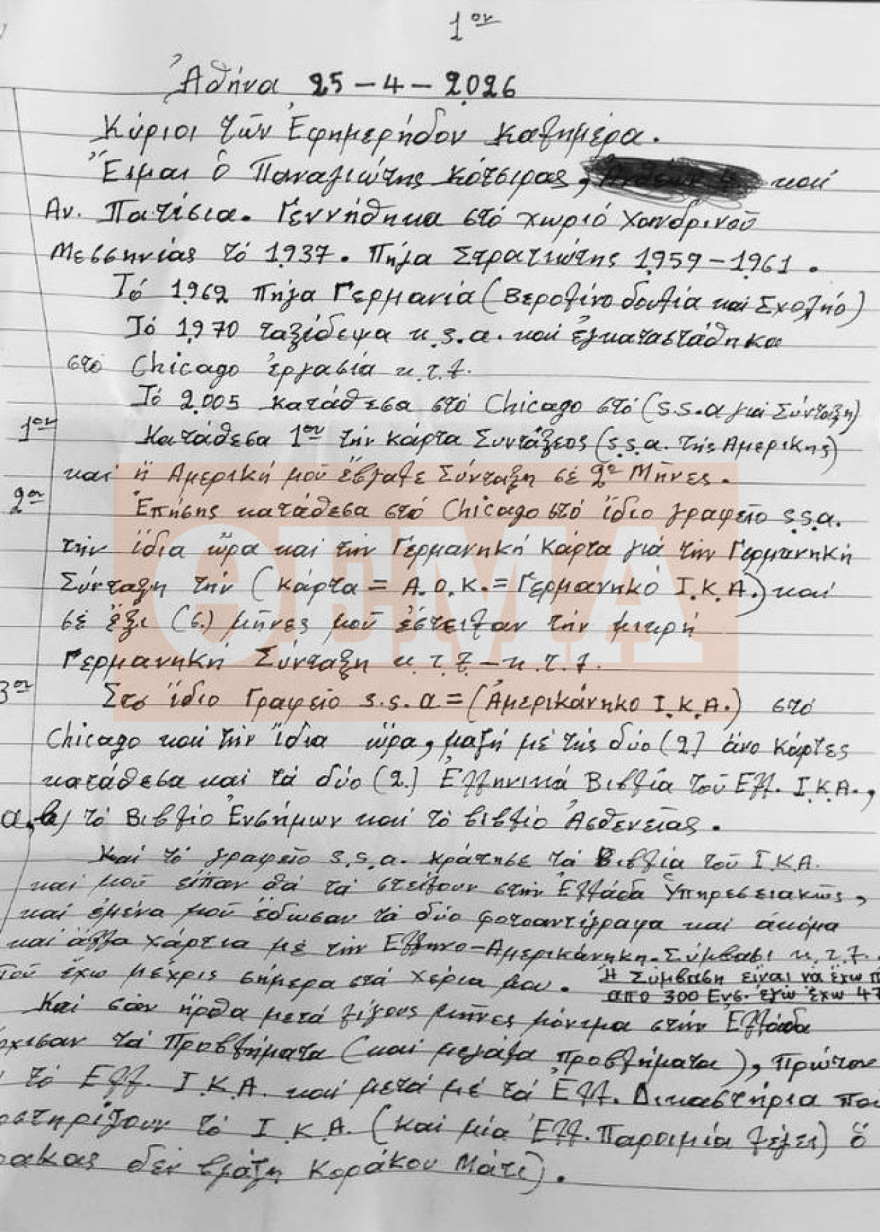 1ον
Ἀθήνα 25-4-2026
Κύριοι τῶν Ἐφημερήδον καλημέρα.
Ἔιμαι ὁ Παναγιώτης Κότσιρας, καί
Αν. Πατίσια. Γεννήθηκα στό χωριό Χανδρινοῦ
Μεσσηνίας τό 1937. Πῆγα Στρατιώτης 1959-1961.
Τό 1962 πῆγα Γερμανία (Βερολίνο δουλιά και Σχολήο)
Τό 1970 ταξίδεψα u.s.a. καί ἐγκαταστάθηκα
στό Chicago ἐργασία κ.τ.λ.
Τό 2005 κατάθεσα στό Chicago στό (s.s.a γιά Σύνταξη)
1ον Κατάθεσα 1ον τήν κάρτα Συντάξεος (s.s.a. τῆς Αμερικης)
καί ἡ Αμερική μοῦ ἔβγαλε Σύνταξη σέ 2ο Μῆνες.
2ον Ἐπήσης κατάθεσα στό Chicago στό ἴδιο γραφεῖο s.s.a.
τήν ἴδια ὥρα και τήν Γερμανηκή Κάρτα γιά τήν Γερμανηκή
Σύνταξη τήν (κάρτα = Α.Ο.Κ. = Γερμανηκό Ι.Κ.Α.) καί
σέ ἔξι (6.) μῆνες μοῦ ἔστειλαν τήν μικρή
Γερμανηκή Σύνταξη κ.τ.λ-κ.τ.λ.
3ον Στο ἴδιο Γραφεῖο s.s.a = (Ἀμερικάνηκο Ι.Κ.Α.) στό
Chicago καί τήν ἴδια ὥρα, μαζή μέ τῆς δύο (2) ἄνο κάρτες
κατάθεσα και τά δύο (2.) Ἑλληνικά Βιβλία τοῦ Ελλ. Ι.Κ.Α.,
a, b) τό Βιβλίο Ἐνσήμων καί τό βιβλίο Ἀσθενείας.
Καί τό γραφεῖο s.s.a. κράτησε τά Βιβλία τοῦ Ι.Κ.Α
καί μοῦ εἶπαν θά τά στείλουν στήν Ἑλλάδα Ὑπηρεσειακῶς,
καί ἐμένα μοῦ ἔδωσαν τά δύο φοτοαντίγραφα και ἀκόμα
καί ἄλλα χάρτια μέ τήν Ελληνο-Αμερικάνηκη-Σύμβασι κ.τ.λ.
Ποῦ ἔχω μέχρις σήμερα στά χέρια μου. Ἡ Σύμβαση εἶναι νά ἔχω
ἀπο 300 Ενσ. ἐγώ ἔχω 47
Καί σάν ἦρθα μετά λίγους μῆνες μόνιμα στήν Ἑλλάδα
ρχισαν τά Προβλήματα (και μεγάλα προβλήματα), Πρώτον
τό Ελλ. Ι.Κ.Α. καί μετά μέ τά Ελλ. Δικαστήρια που
οστηρίζουν τό Ι.Κ.Α. (καί μία Ελλ. Παροιμία λέγει) ὁ
ρακας δέν βγάζη Κοράκου Μάτι).
ΘΕΜΑ